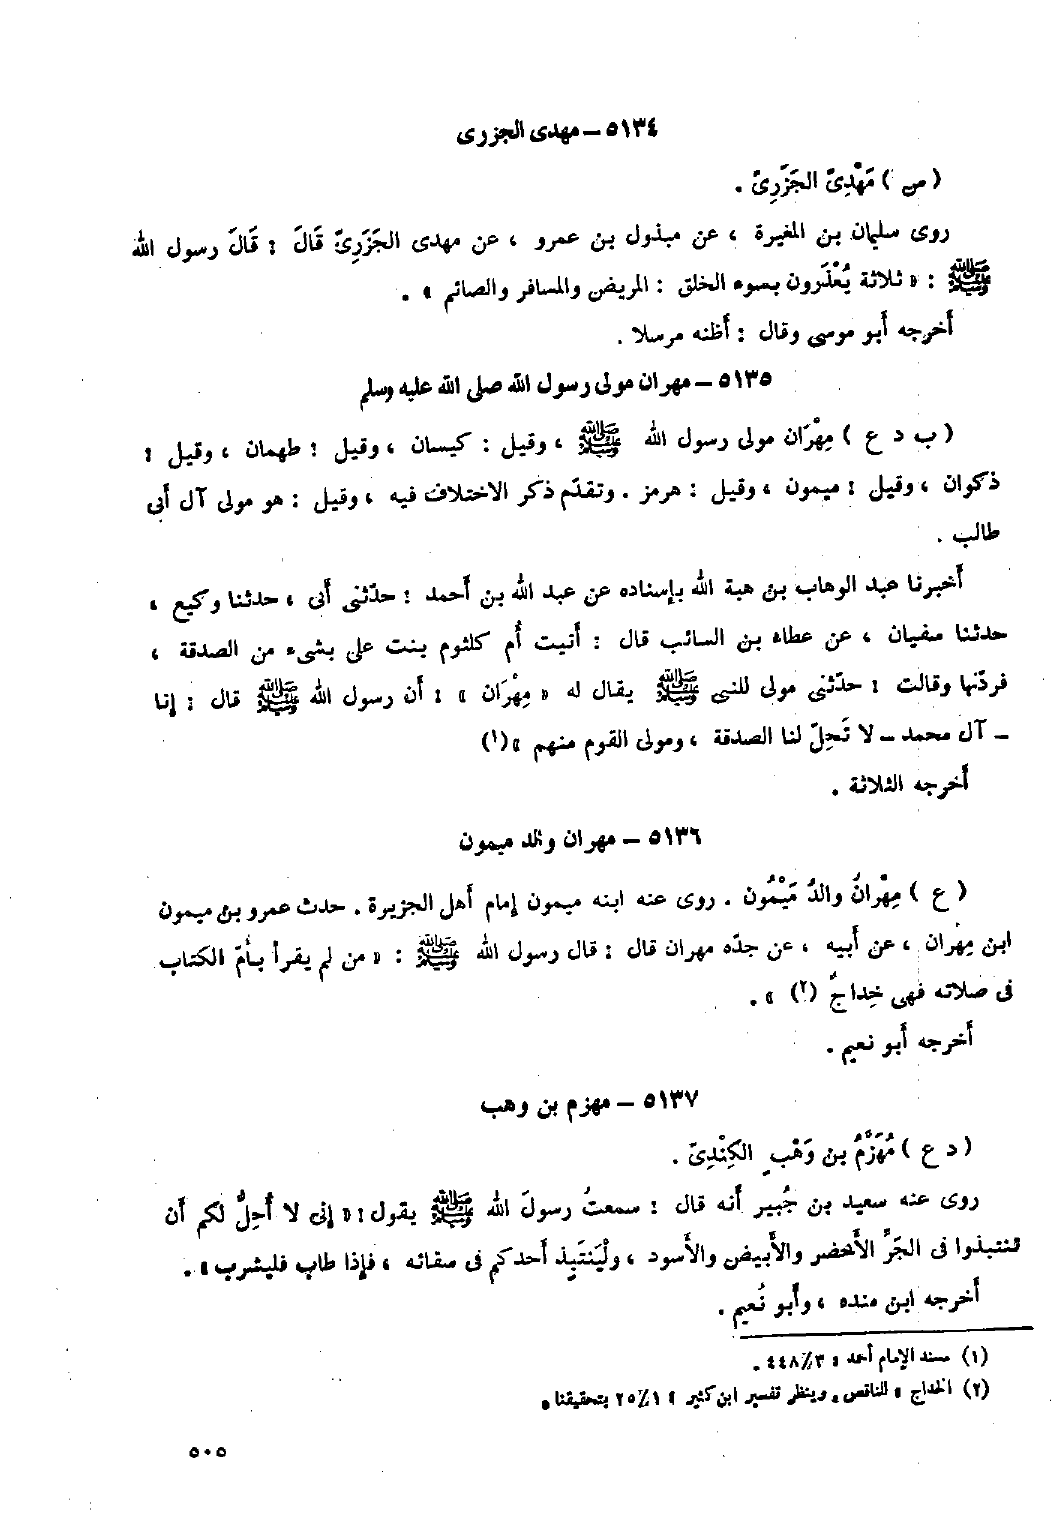 ٥١٣٤ – مهدى الجزرى
( س ) مَهْدِىّ الجَزَرِىّ .
روى سليمان بن المغيرة ، عن مبذول بن عمرو ، عن مهدى الجَزَرِىّ قَالَ : قَالَ رسول الله
ﷺ : « ثلاثة يُعْذَرون بسوء الخلق : المريض والمسافر والصائم » .
أخرجه أبو موسى وقال : أظنه مرسلا .
٥١٣٥ – مهران مولى رسول الله صلى الله عليه وسلم
( ب د ع ) مِهْرَان مولى رسول الله ﷺ ، وقيل : كيسان ، وقيل : طهمان ، وقيل :
ذكوان ، وقيل : ميمون ، وقيل : هرمز . وتقدّم ذكر الاختلاف فيه ، وقيل : هو مولى آل أبى
طالب .
أخبرنا عبد الوهاب بن هبة الله بإسناده عن عبد الله بن أحمد : حدّثنى أبى ، حدثنا وكيع ،
حدثنا سفيان ، عن عطاء بن السائب قال : أتيت أُم كلثوم بنت على بشىء من الصدقة ،
فردّتها وقالت : حدّثنى مولى للنبى ﷺ يقال له « مِهْرَان » : أن رسول الله ﷺ قال : إنا
– آل محمد – لا تَحِلّ لنا الصدقة ، ومولى القوم منهم » (١)
أخرجه الثلاثة .
٥١٣٦ – مهران والد ميمون
( ع ) مِهْرانُ والدُ مَيْمُون . روى عنه ابنه ميمون إمام أهل الجزيرة . حدث عمرو بن ميمون
ابن مِهْران ، عن أبيه ، عن جدّه مهران قال : قال رسول الله ﷺ : « من لم يقرأ بأمّ الكتاب
فى صلاته فهى خِداجٌ (٢) » .
أخرجه أبو نعيم .
٥١٣٧ – مهزم بن وهب
( د ع ) مُهَزَّمُ بن وَهْبٍ الكِنْدِىّ .
روى عنه سعيد بن جُبير أنه قال : سمعتُ رسولَ الله ﷺ يقول : « إنى لا أُحِلُّ لكم أن
تنتبذوا فى الجَرِّ الأخضر والأبيض والأسود ، ولْيَنتَبِذ أحدكم فى سقائه ، فإذا طاب فليشرب » .
أخرجه ابن منده ، وأبو نُعيم .
(١) مسند الإمام أحمد : ٣/٤٤٨ .
(٢) الخداج : الناقص . وينظر تفسير ابن كثير : ١/٢٥ بتحقيقنا .
٥٠٥